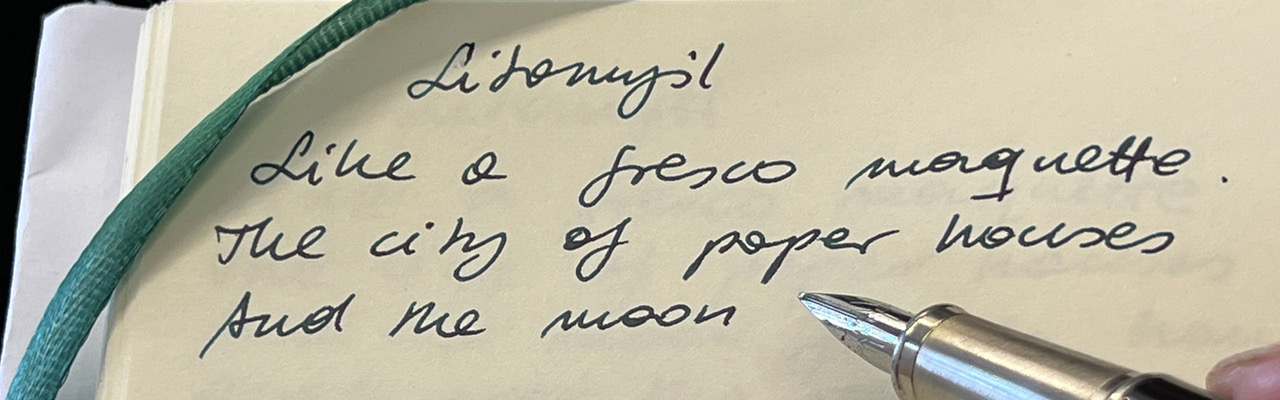 Litomyśl
Like a fresco maquette.
The city of paper houses
And the moon